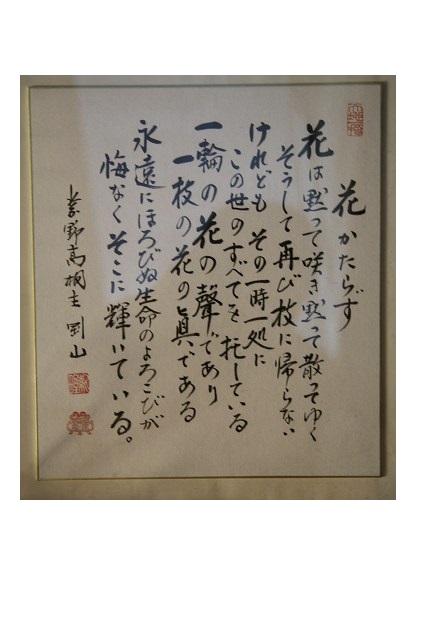 花かたらず
花は黙って咲き黙って散ってゆく
そうして再び枝に帰らない
けれども その一時一処に
この世のすべてを托している
一輪の花の聲であり
一枝の花の真である
永遠にほろびぬ生命のよろこびが
悔なくそこに輝いている。
高桐 剛山